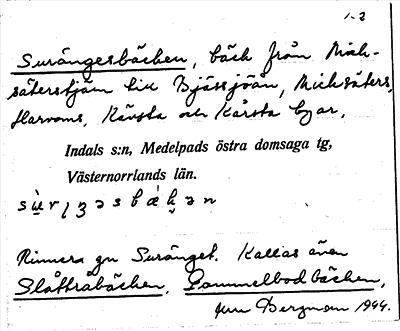 1-2
Surängesbäcken, bäck från Mick-
säterstjärn till Bjässjöån, Micksäters,
Harvoms, Kävsta och Kårsta byar,
Indals s:n, Medelpads östra domsaga tg,
Västernorrlands län.
Rinnera gn Suränget. Kallas även
Slåttråbäcken, Dammelbodbäcken,
Bergman 1944.